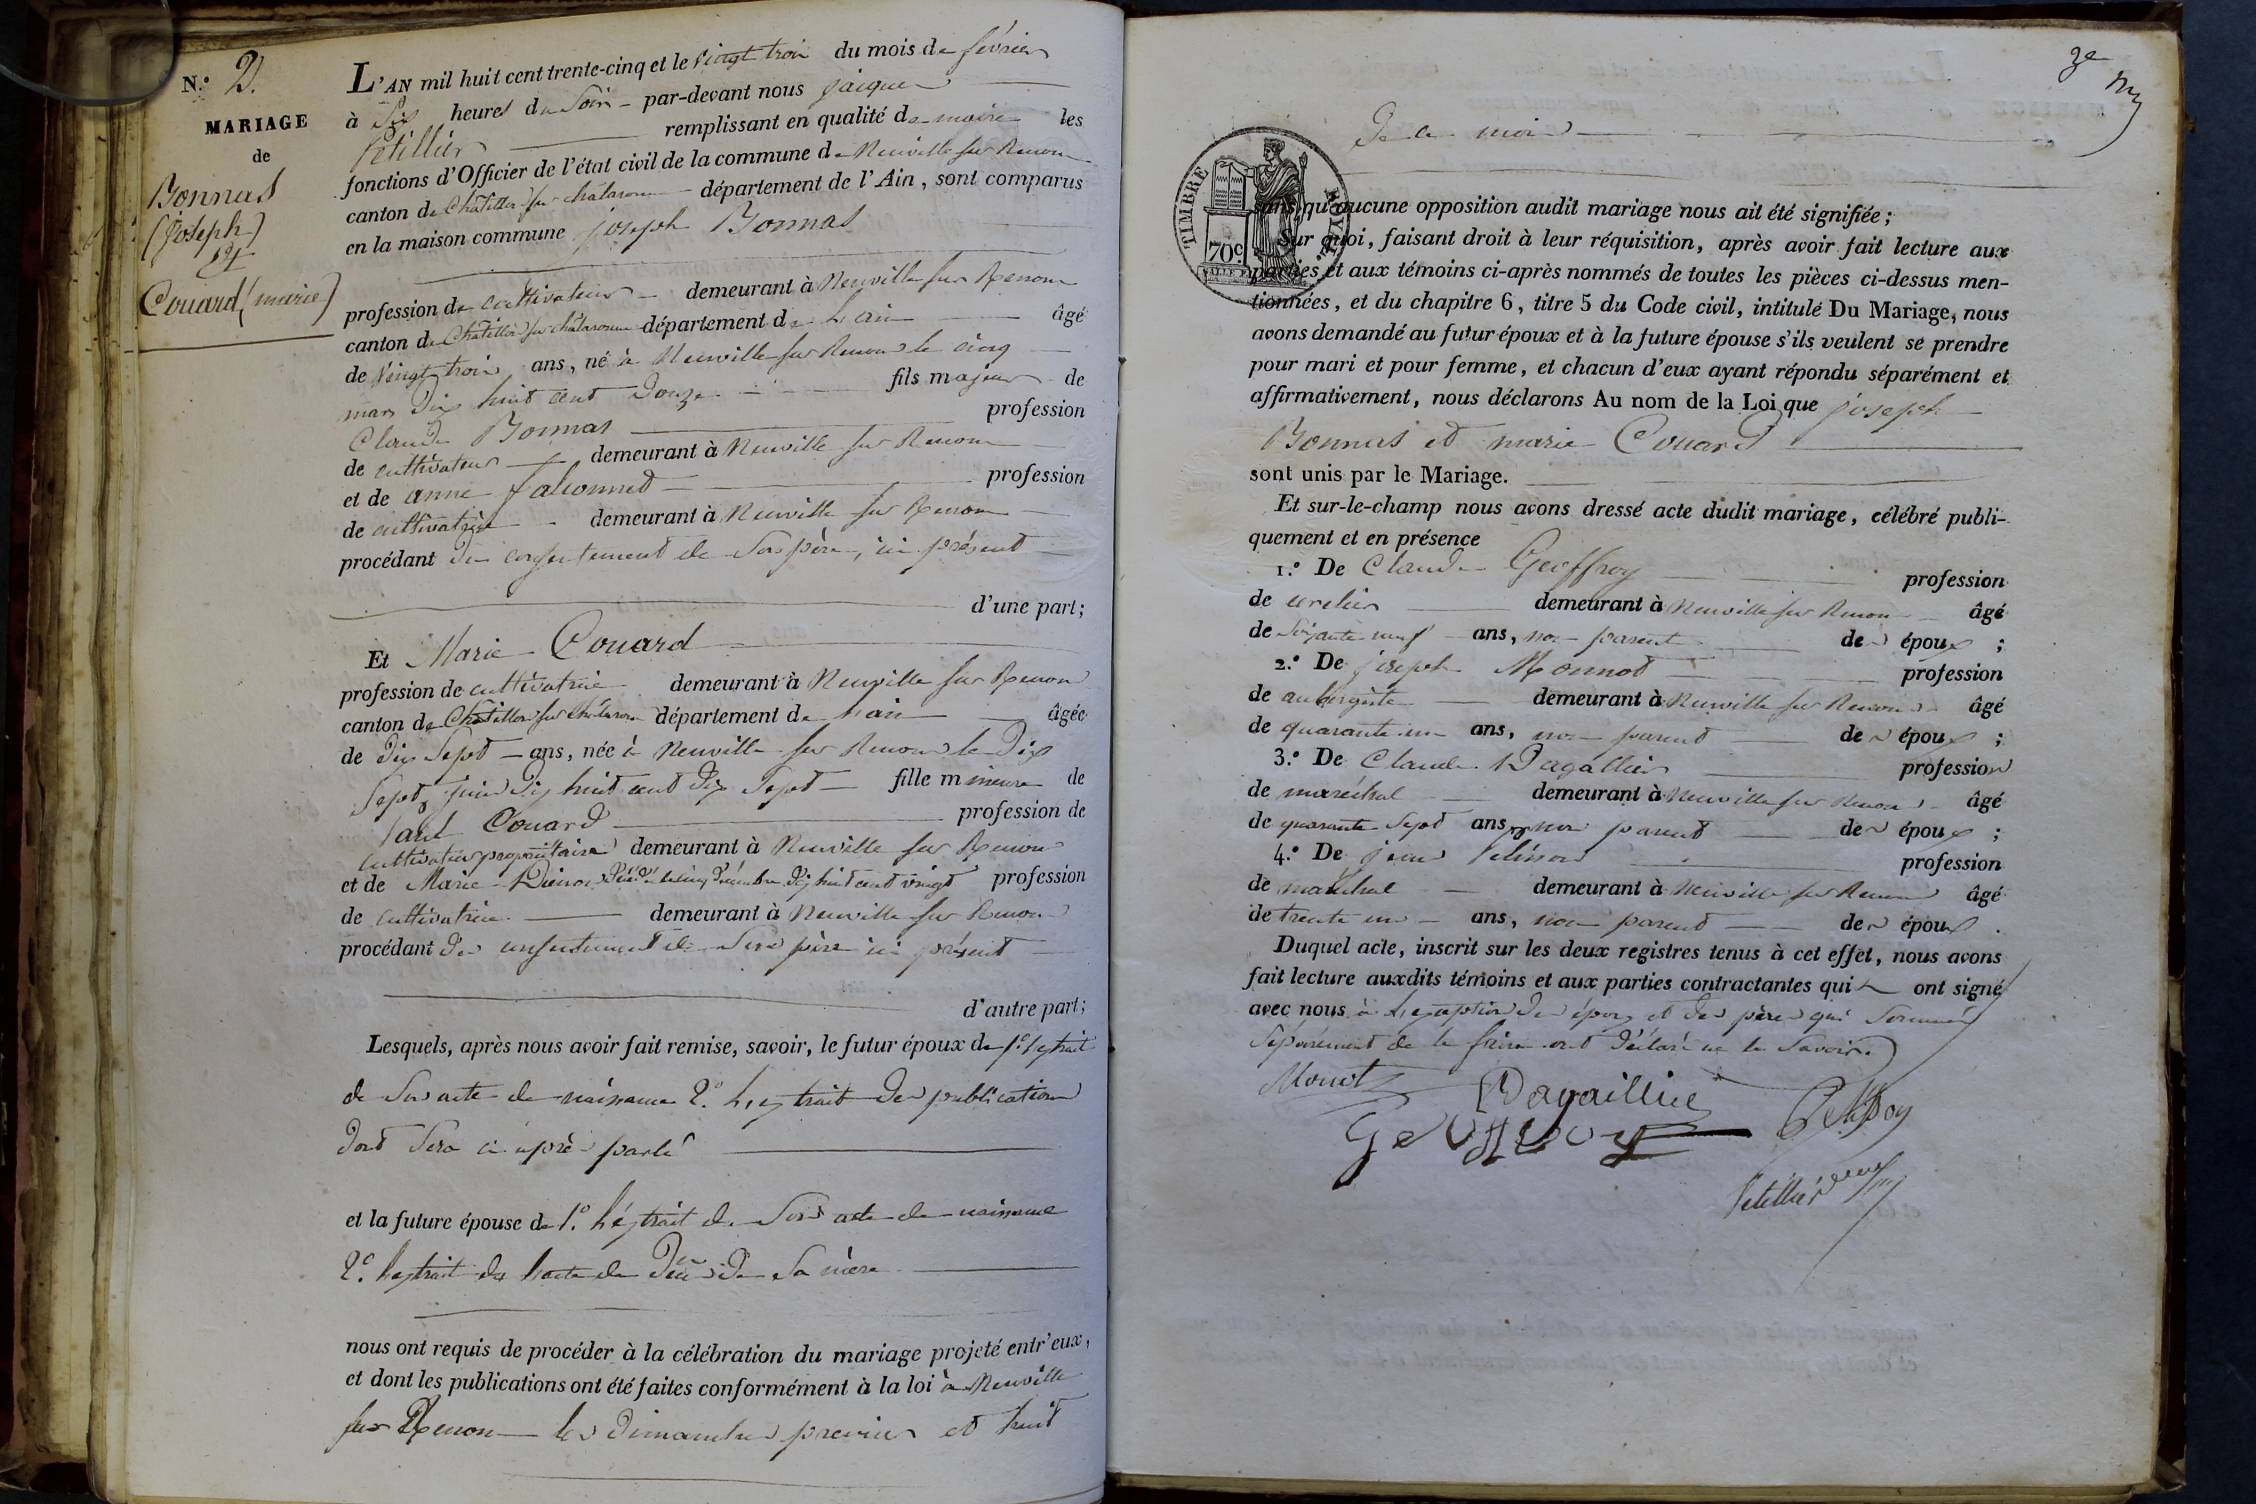 N.º 2.
MARIAGE
de
Bonnas
(joseph)
et
Couard (marie)
L'AN mil huit cent trente-cinq et le vingt trois du mois de février
à six heures du soir par-devant nous jacques
Petillier remplissant en qualité de maire les
fonctions d'Officier de l'état civil de la commune de Neuville sur Renon
canton de Châtillon sur chalaronne département de l'Ain, sont comparus
en la maison commune joseph Bonnas
profession de cultivateur demeurant à Neuville sur Renon
canton de Châtillon sur chalaronne département de Lain âgé
de vingt trois ans, né à Neuville sur Renon le cinq
mars dix huit cent douze fils majeur de
Claude Bonnas profession
de cultivateur demeurant à Neuville sur Renon
et de anne profession
de cultivatrice demeurant à Neuville sur Renon
procédant du consentement de son père, ici présent
d'une part;
Et Marie Couard
profession de cultivatrice demeurant à Neuville sur Renon
canton de Châtillon sur chalaronne département de Lain âgée
de dix sept ans, née à Neuville sur Renon le dix
sept juin dix huit cent dix sept fille mineure de
Couard profession de
cultivateur propriétaire demeurant à Neuville sur Renon
et de Marie le cinq décembre dix huit cent vingt profession
de cultivatrice demeurant à Neuville sur Renon
procédant du consentement de son père ici présent
d'autre part;
Lesquels, après nous avoir fait remise, savoir, le futur époux de 1º lextrait
de son acte de naissance 2º Lextrait des publications
dont sera ci après parlé
et la future épouse de 1º. Léxtrait de son acte de naissance
2º. Lextrait de lacte de décès de sa mère
nous ont requis de procéder à la célébration du mariage projeté entr'eux,
et dont les publications ont été faites conformément à la loi à Neuville
sur Renon les dimanches premier et huit
3e
De ce mois
TIMBRE ROYAL
70c.
sans qu'aucune opposition audit mariage nous ait été signifiée;
Sur quoi, faisant droit à leur réquisition, après avoir fait lecture aux
parties et aux témoins ci-après nommés de toutes les pièces ci-dessus men-
tionnées, et du chapitre 6, titre 5 du Code civil, intitulé Du Mariage, nous
avons demandé au futur époux et à la future épouse s'ils veulent se prendre
pour mari et pour femme, et chacun d'eux ayant répondu séparément et
affirmativement, nous déclarons Au nom de la Loi que joseph
Bonnas et marie Couard
sont unis par le Mariage.
Et sur-le-champ nous avons dressé acte dudit mariage, célébré publi-
quement et en présence
1.º De Claude Geoffroy profession
de demeurant à Neuville sur Renon âgé
de soixante neuf ans, non parent des époux ;
2.º De joseph Monnot profession
de aubergiste demeurant à Neuville sur Renon âgé
de quarante un ans, non parent des époux ;
3.º De Claude Dagallier profession
de maréchal demeurant à Neuville sur Renon âgé
de quarante sept ans, non parent des époux ;
4.º De jean profession
de maréchal demeurant à Neuville sur Renon âgé
de trente un ans, non parent des époux .
Duquel acte, inscrit sur les deux registres tenus à cet effet, nous avons
fait lecture auxdits témoins et aux parties contractantes qui ont signé
avec nous à lexception des époux et des pères qui sommés
séparément de le faire ont déclaré ne le savoir.
Monot Dagaillier
Geoffroy
Petillier maire